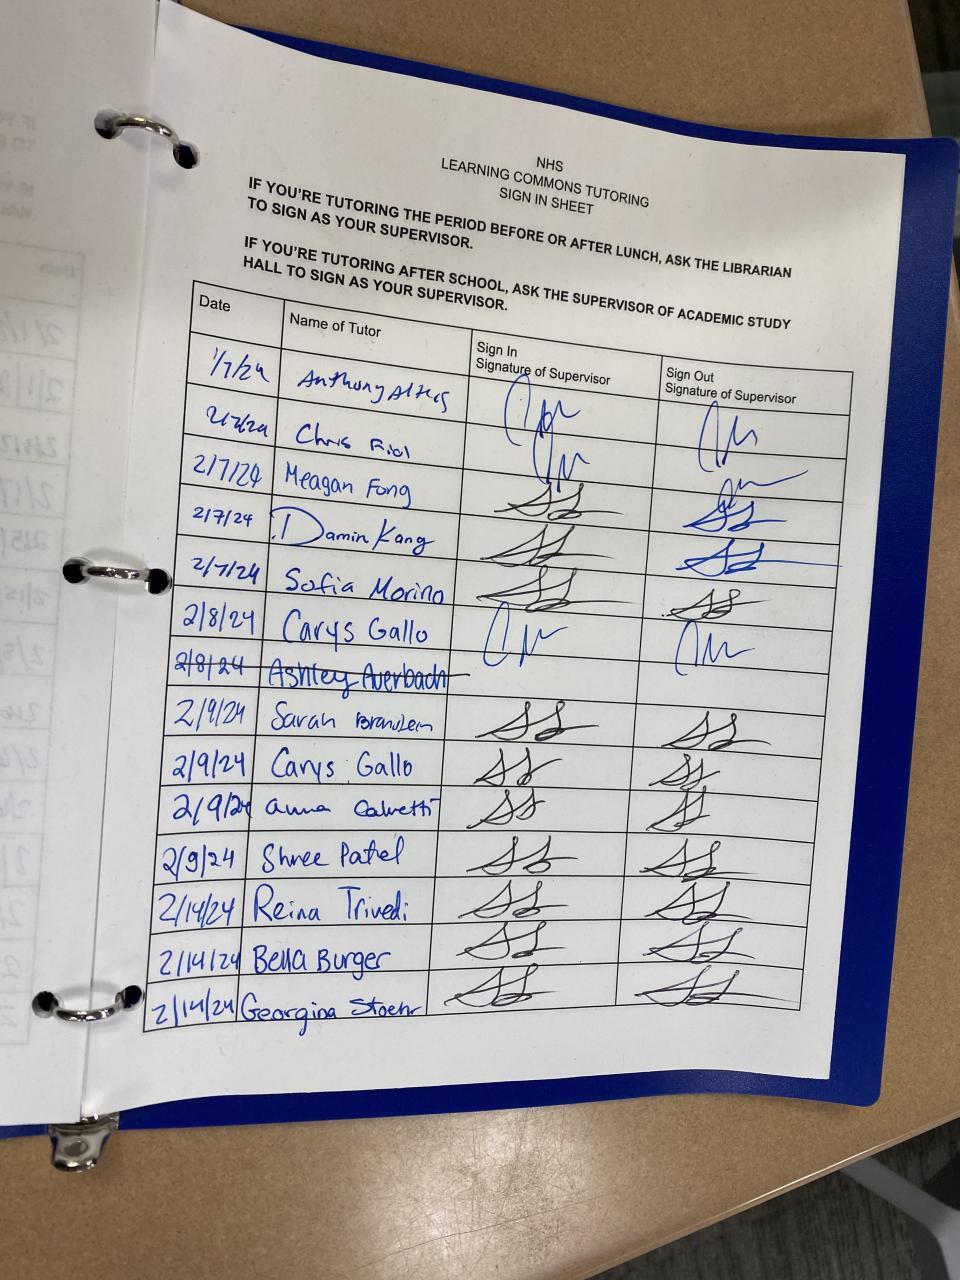 NHS
LEARNING COMMONS TUTORING
SIGN IN SHEET
IF YOU'RE TUTORING THE PERIOD BEFORE OR AFTER LUNCH, ASK THE LIBRARIAN
TO SIGN AS YOUR SUPERVISOR.
IF YOU'RE TUTORING AFTER SCHOOL, ASK THE SUPERVISOR OF ACADEMIC STUDY
HALL TO SIGN AS YOUR SUPERVISOR.
Date Name of Tutor Sign In Signature of Supervisor Sign Out Signature of Supervisor
1/7/24 Anthony
2/7/24 Chris
2/7/24 Meagan Fong
2/7/24 Damin Kang
2/7/24 Sofia Morino
2/8/24 Carys Gallo
2/8/24 Ashley Auerbach
2/9/24 Sarah
2/9/24 Carys Gallo
2/9/24 anna Calvetti
2/9/24 Shree Patel
2/14/24 Reina Trivedi
2/14/24 Bella Burger
2/14/24 Georgina Stoehr